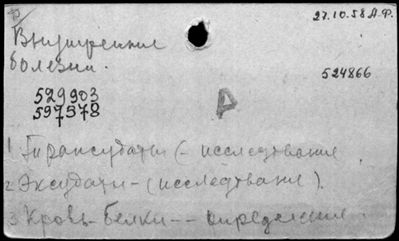 27.10.58 А.Ф.
Внутренние
болезни.
524866
529903
597578
Р
1 Транссудаты (- исследование
2 Эксудаты - (исследование).
3 Кровь - белки -- определение.